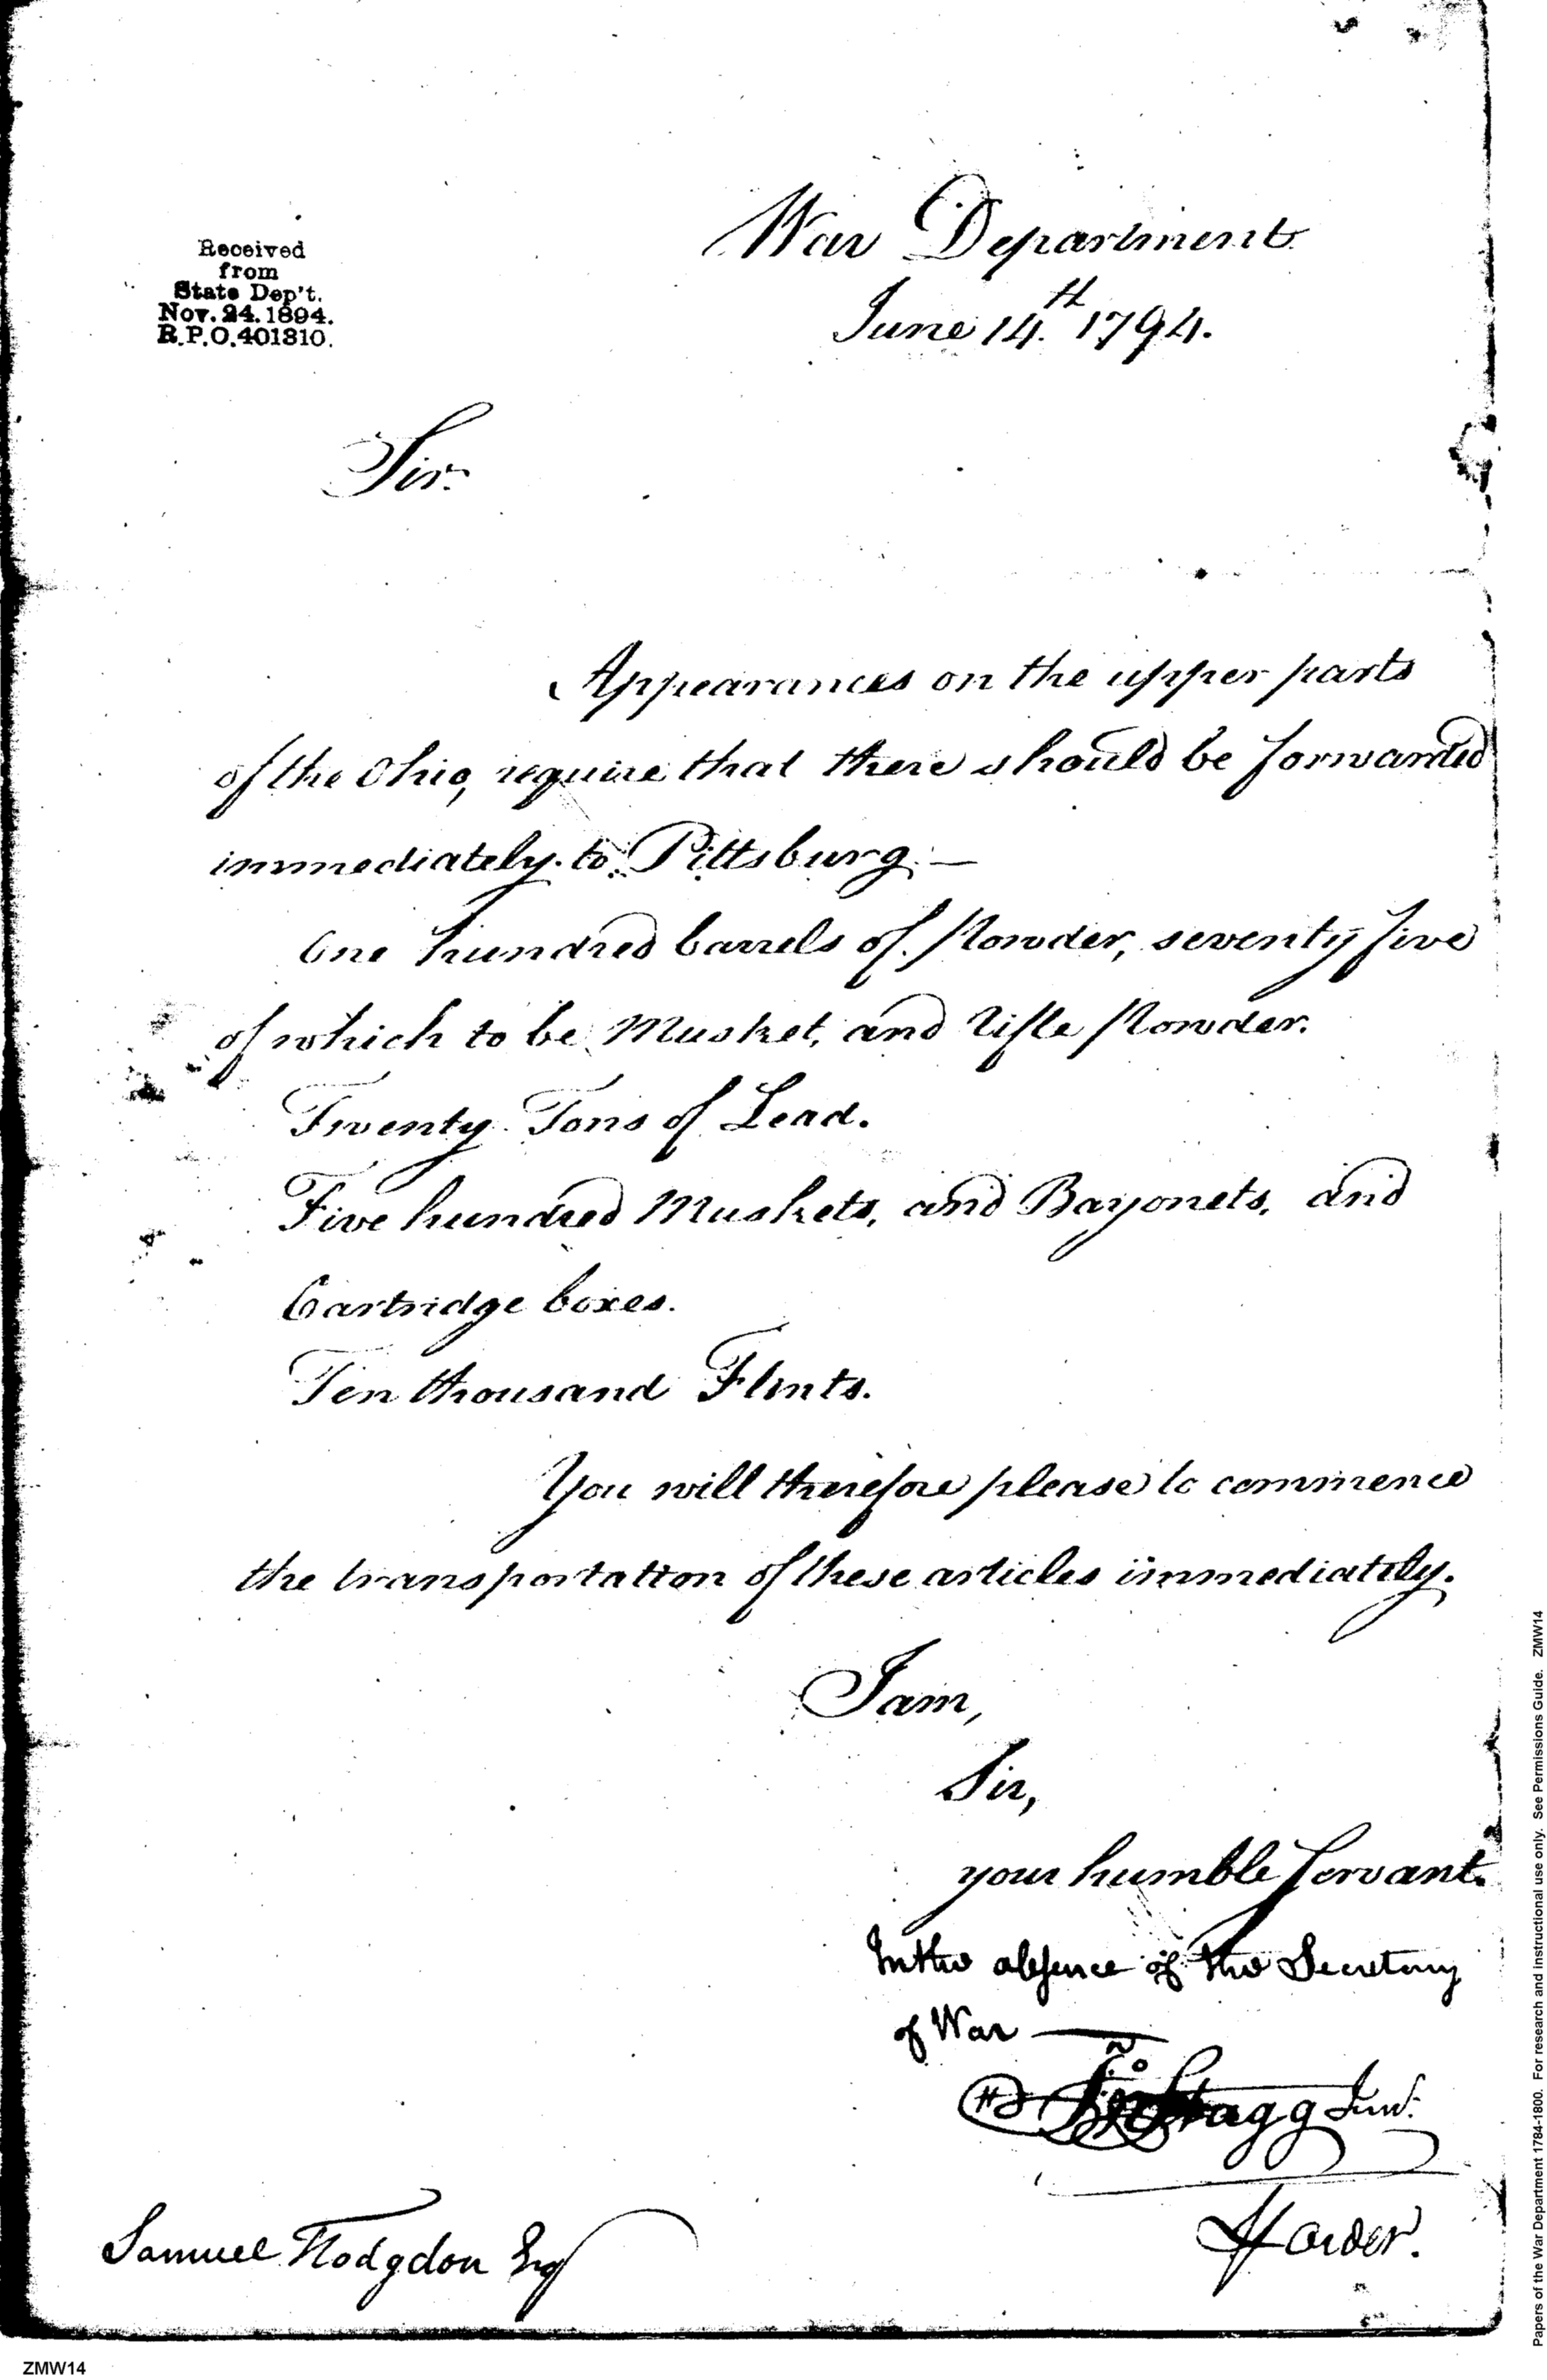 Received
from
State Dep't.
Nov. 24. 1894.
R.P.O. 401310.
War Department
June 14th 1794.
Sir.
Appearances on the upper parts
of the Ohio, require that there should be forwarded
immediately to Pittsburg. —
One hundred barrels of Powder, seventy five
of which to be Musket, and Rifle Powder.
Twenty Tons of Lead.
Five hundred Muskets, and Bayonets, and
Cartridge boxes.
Ten thousand Flints.
You will therefore please to commence
the transportation of these articles immediately.
I am,
Sir,
your humble Servant.
In the absence of the Secretary
of War —
Stagg Junr.
Samuel Hodgdon Esq
Papers of the War Department 1784-1800. For research and instructional use only. See Permissions Guide. ZMW14
ZMW14